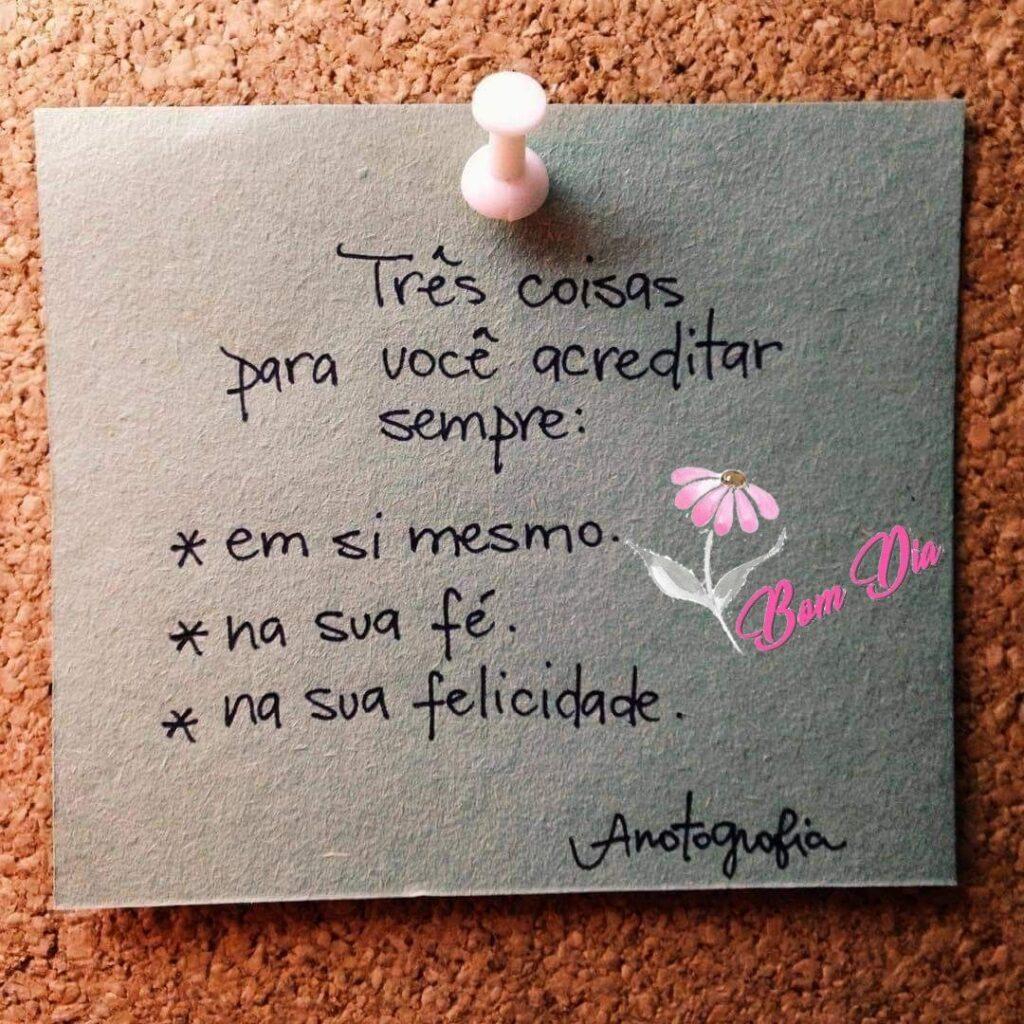 Três coisas
para você acreditar
sempre:
* em si mesmo.
* na sua fé.
* na sua felicidade.
Bom Dia
Anotografia